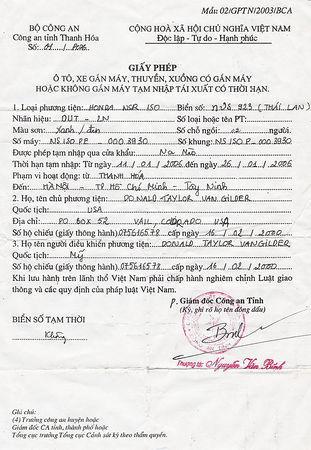 Mẫu: 02/GPTN/2003/BCA
BỘ CÔNG AN
Công an tỉnh Thanh Hóa
Số: 01 / 2006
CỘNG HOÀ XÃ HỘI CHỦ NGHĨA VIỆT NAM
Độc lập - Tự do - Hạnh phúc
GIẤY PHÉP
Ô TÔ, XE GẮN MÁY, THUYỀN, XUỒNG CÓ GẮN MÁY
HOẶC KHÔNG GẮN MÁY TẠM NHẬP TÁI XUẤT CÓ THỜI HẠN.
1. Loại phương tiện: HONDA NSR 150 Biển số: 923 (THÁI LAN)
Nhãn hiệu: OUT - LN Số loại hoặc PT:
Màu sơn: Xanh / đen Số chỗ ngồi: 02 người.
Số máy: NS150 PE - 0003930 Số khung: NS150 P - 0003930
Được phép tạm nhập qua cửa khẩu: Na Mèo
Thời hạn tạm nhập: Từ ngày 11 / 01 / 2006 đến ngày 26 / 01 / 2006
Phạm vi hoạt động: Từ THANH HOÁ
Đến: HÀNỘI - TP. Hồ Chí Minh - Tây Ninh
2. Họ, tên chủ phương tiện: DONALD TAYLOR VAN GILDER
Quốc tịch: USA
Địa chỉ: PO BOX 52 VAIL, COLORADO USA
Số hộ chiếu (giấy thông hành): 075616578 cấp ngày 16 / 02 / 2000
3. Họ tên người điều khiển phương tiện: DONALD TAYLOR VANGILDER
Quốc tịch: Mỹ
Số hộ chiếu (giấy thông hành): 075616578 cấp ngày 16 / 02 / 2000
Khi lưu hành trên lãnh thổ Việt Nam phải chấp hành nghiêm chỉnh Luật giao
thông và các quy định của pháp luật Việt Nam.
P. Giám đốc Công an Tỉnh
(Ký, ghi rõ họ tên đóng dấu)
BIỂN SỐ TẠM THỜI
Không
Thượng tá: Nguyễn Văn Bính
Ghi chú:
(4) Trưởng công an huyện hoặc
Giám đốc CA tỉnh, thành phố hoặc
Tổng cục trưởng Tổng cục Cảnh sát ký theo thẩm quyền.